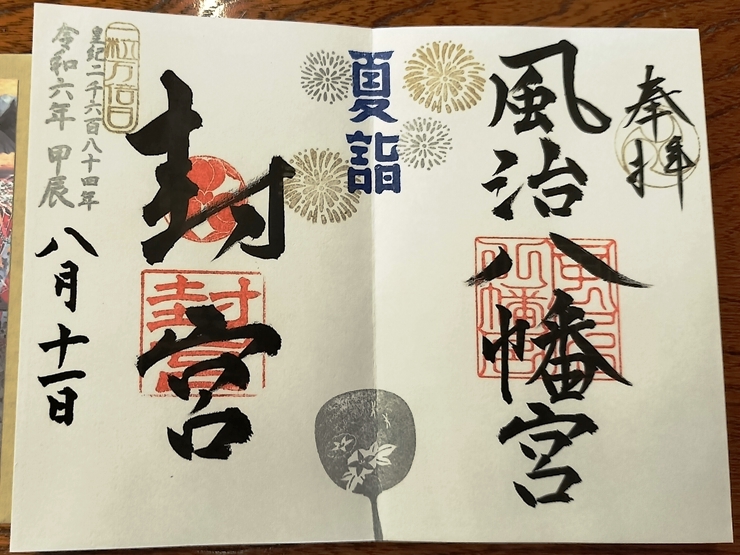 奉拝
風治八幡宮
風治八幡宮
夏詣
封宮
封宮
一粒万倍日
皇紀二千六百八十四年
令和六年 甲辰
八月十一日